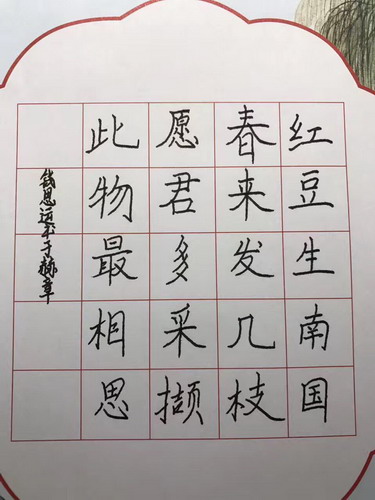 红豆生南国
春来发几枝
愿君多采撷
此物最相思
钱思运书于赣章